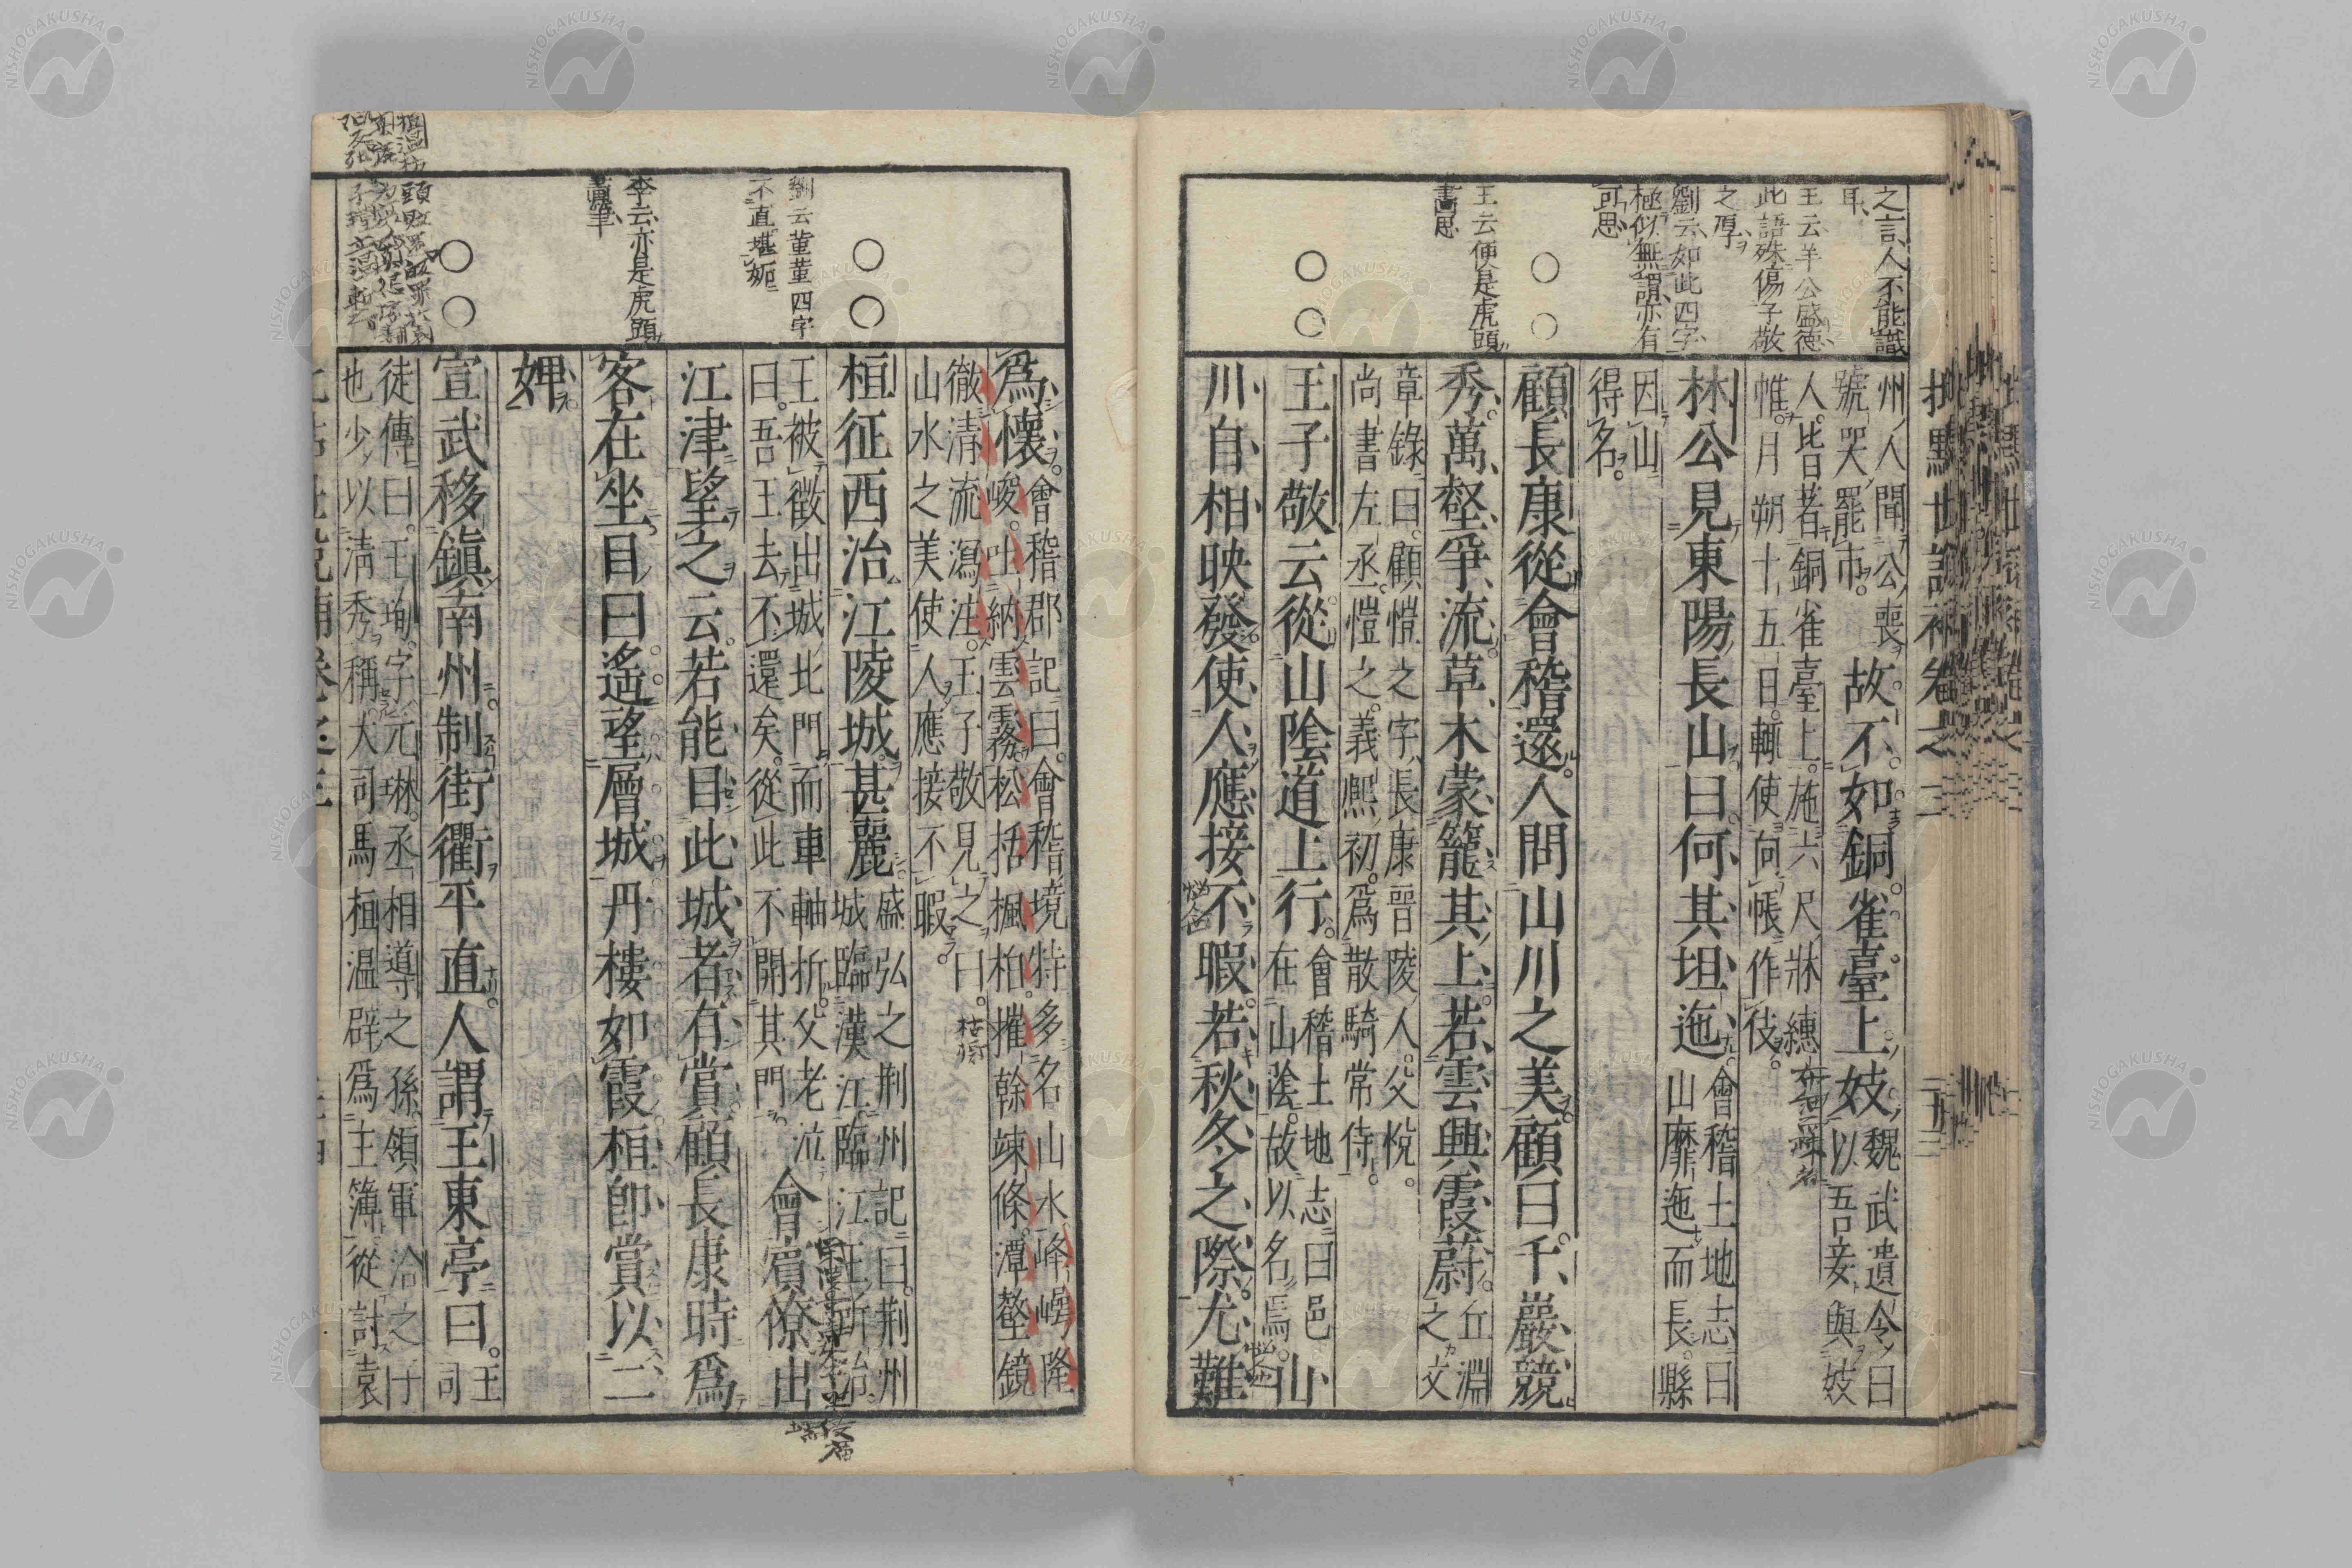 之言人不能識
耳
王云羊公盛德
此語殊傷子敬
之厚
劉云如此四字
極似無謂亦有
可思
王云便是虎頭
畫思
州人聞公喪
號哭罷市。
故不如銅雀臺上妓
魏武遺令曰
以吾妾與妓
人。皆著銅雀臺上。施六尺牀繐
帷。月朔十五日。輒使向帳作伎。
林公見東陽長山曰何其坦迤
會稽土地志曰
山靡迤而長。縣
因山
得名。
顧長康從會稽還人問山川之美顧曰千巖競
秀萬壑爭流草木蒙籠其上若雲興霞蔚
丘淵
之文
章錄曰。顧愷之字長康晉陵人。父悅。
尚書左丞。愷之。義熙初。爲散騎常侍。
王子敬云從山陰道上行。
會稽土地志曰邑
在山陰。故以名焉。
山
川自相映發使人應接不暇若秋冬之際尤難
劉云董董四字
不直堪妮
李云亦是虎頭
畫筆
爲懷。
會稽郡記曰。會稽境特多名山水峰崿隆
峻。吐納雲霧松括楓柏。摧幹竦條。潭壑鏡
徹清流瀉注。王子敬見之曰。
山水之美使人應接不暇。
桓征西治江陵城甚麗
盛弘之荆州記曰。荆州
城臨漢江臨江王所治。
王被徵出城北門而車軸折。父老泣
曰。吾王去不還矣。從此不開其門
會賓僚出
江津望之云若能目此城者有賞顧長康時爲
客在坐目曰遙望層城丹樓如霞桓卽賞以二
婢
宣武移鎮南州制街衢平直人謂王東亭曰。
王
司
徒傳曰。王珣。字元琳。丞相導之孫。領軍洽之子
也少以清秀稱大司馬桓温辟爲主簿從討袁